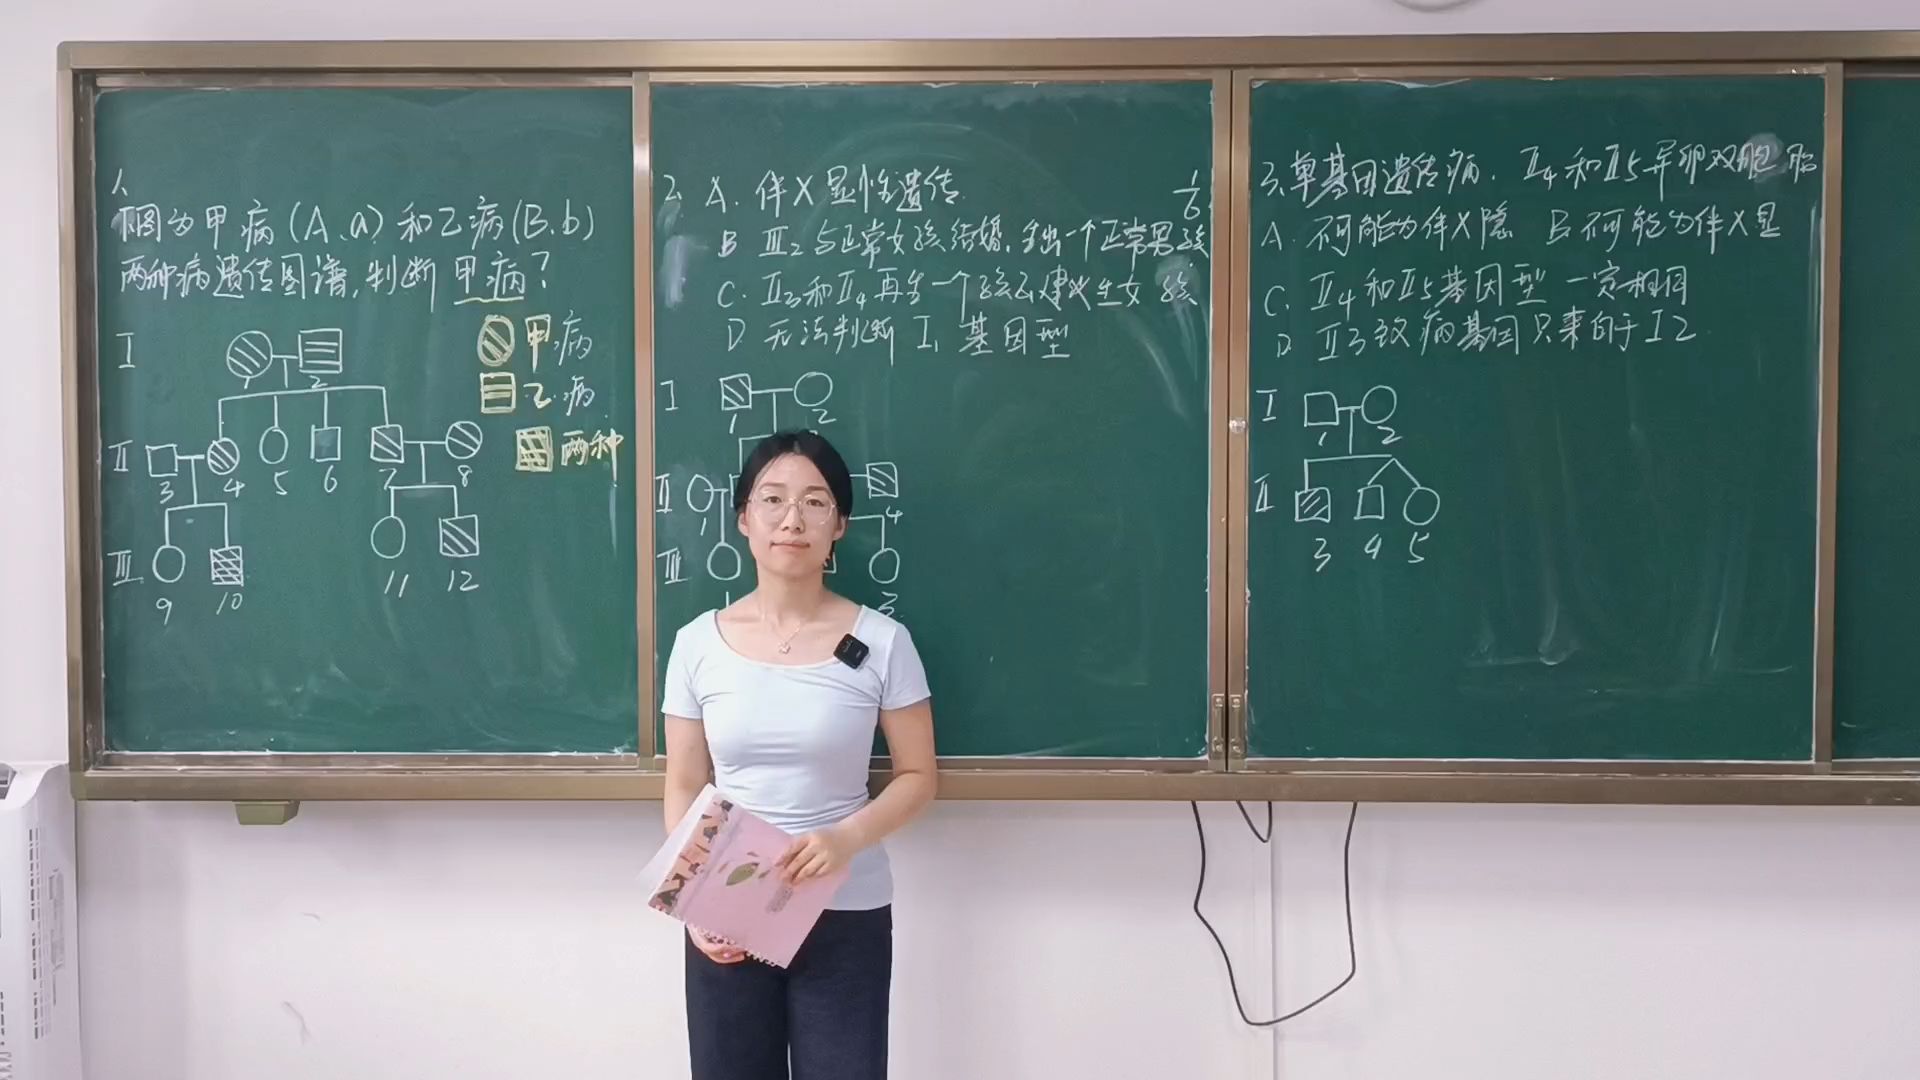 1、
下图为甲病(A、a)和乙病(B、b)
两种病遗传图谱,判断 甲病?
甲病
乙病
两种
I
1 2
II
3 4 5 6 7 8
III
9 10 11 12
2. A. 伴X显性遗传
1/6
B III2与正常女孩结婚,生出一个正常男孩
C. II3和II4再生一个孩子建议生女孩
D 无法判断 I1 基因型
I
1 2
II
1 4
III
1 3
3、单基因遗传病. II4和II5异卵双胞胎
A. 不可能为伴X隐 B.不可能为伴X显
C. II4和II5基因型 一定相同
D II3致病基因只来自于I2
I
1 2
II
3 4 5